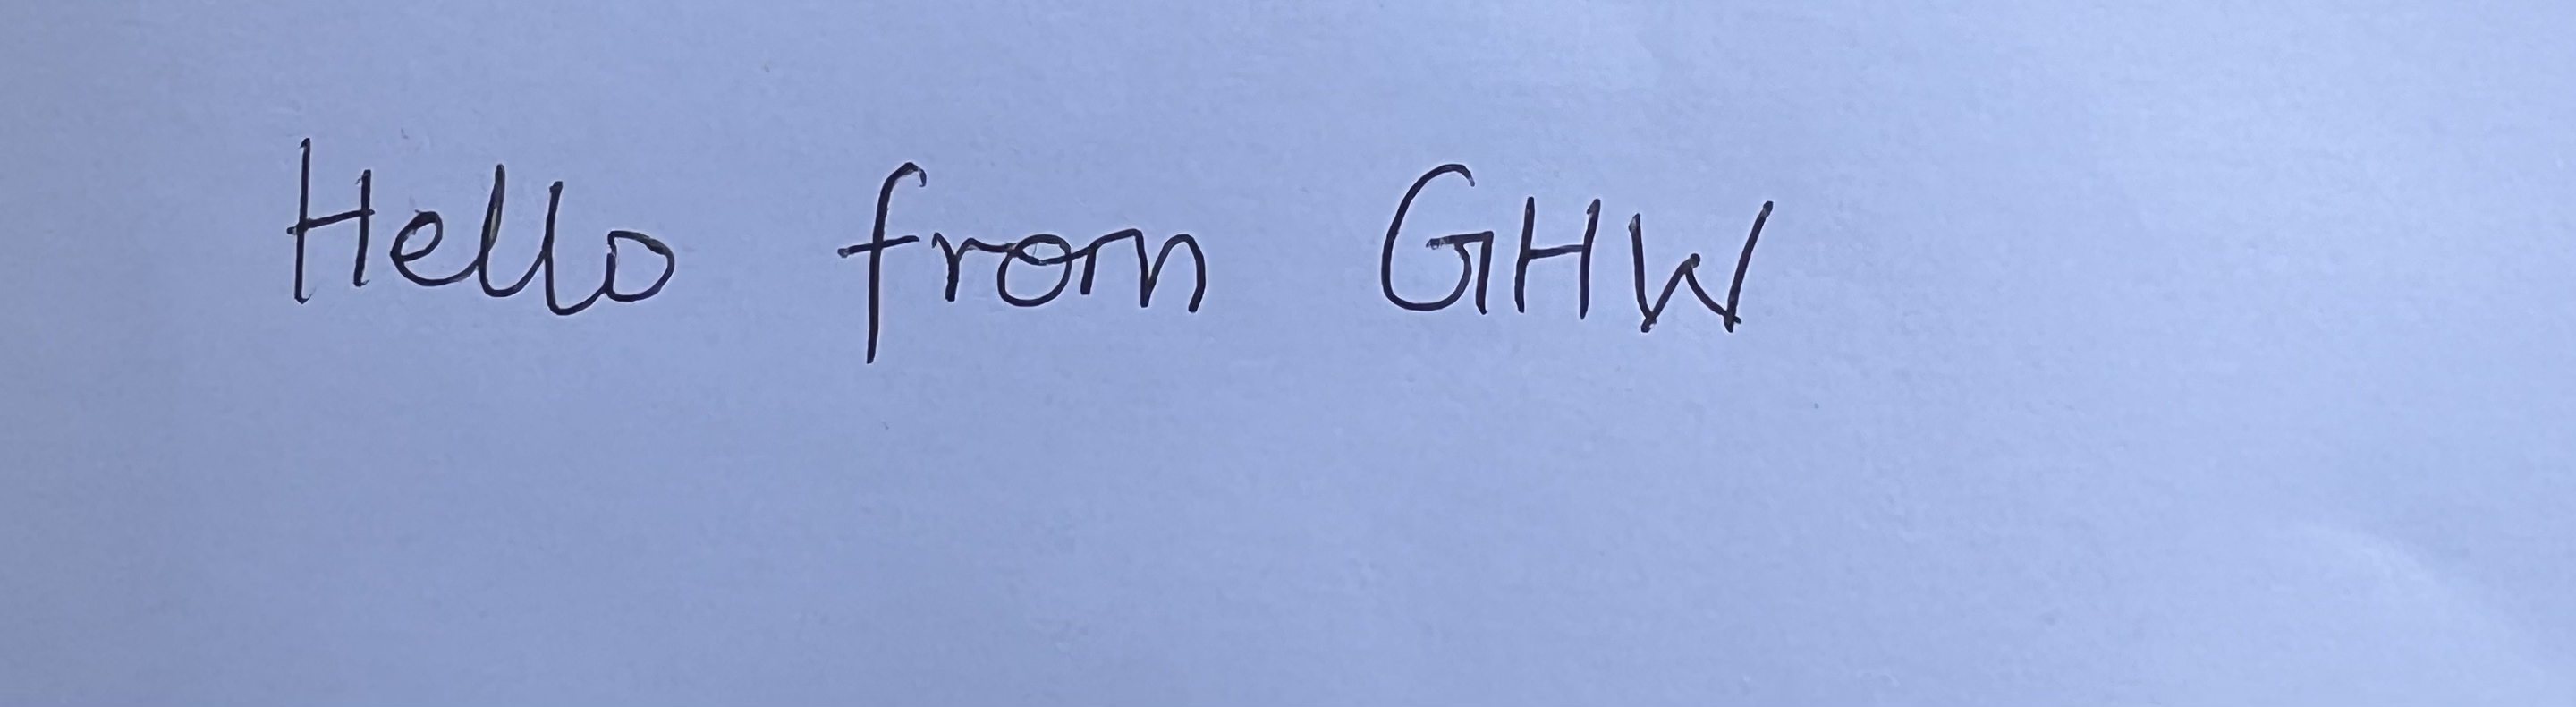 Hello from GHW